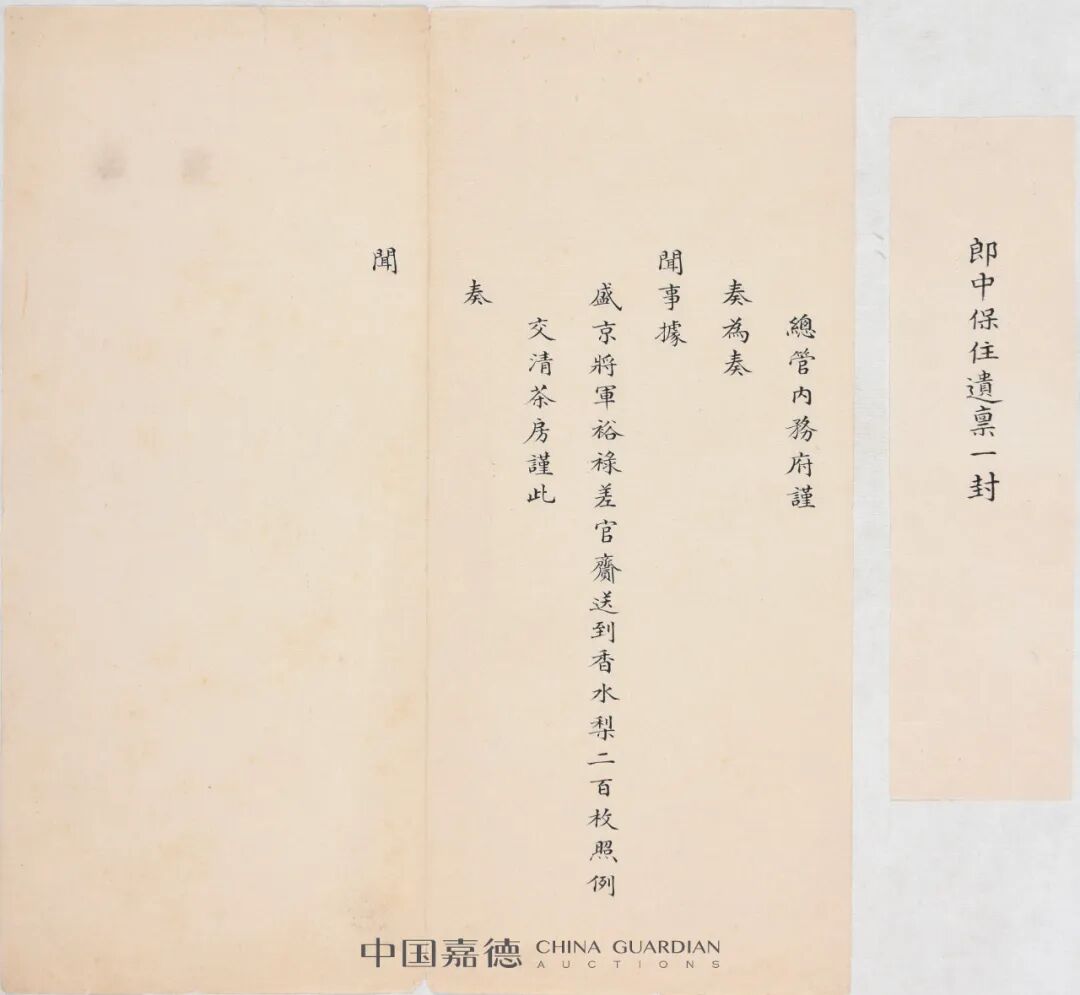 郎中保住遺禀一封
總管內務府謹
奏為奏
聞事據
盛京將軍裕祿差官齎送到香水梨二百枚照例
交清茶房謹此
奏
聞
中国嘉德 CHINA GUARDIAN
AUCTIONS